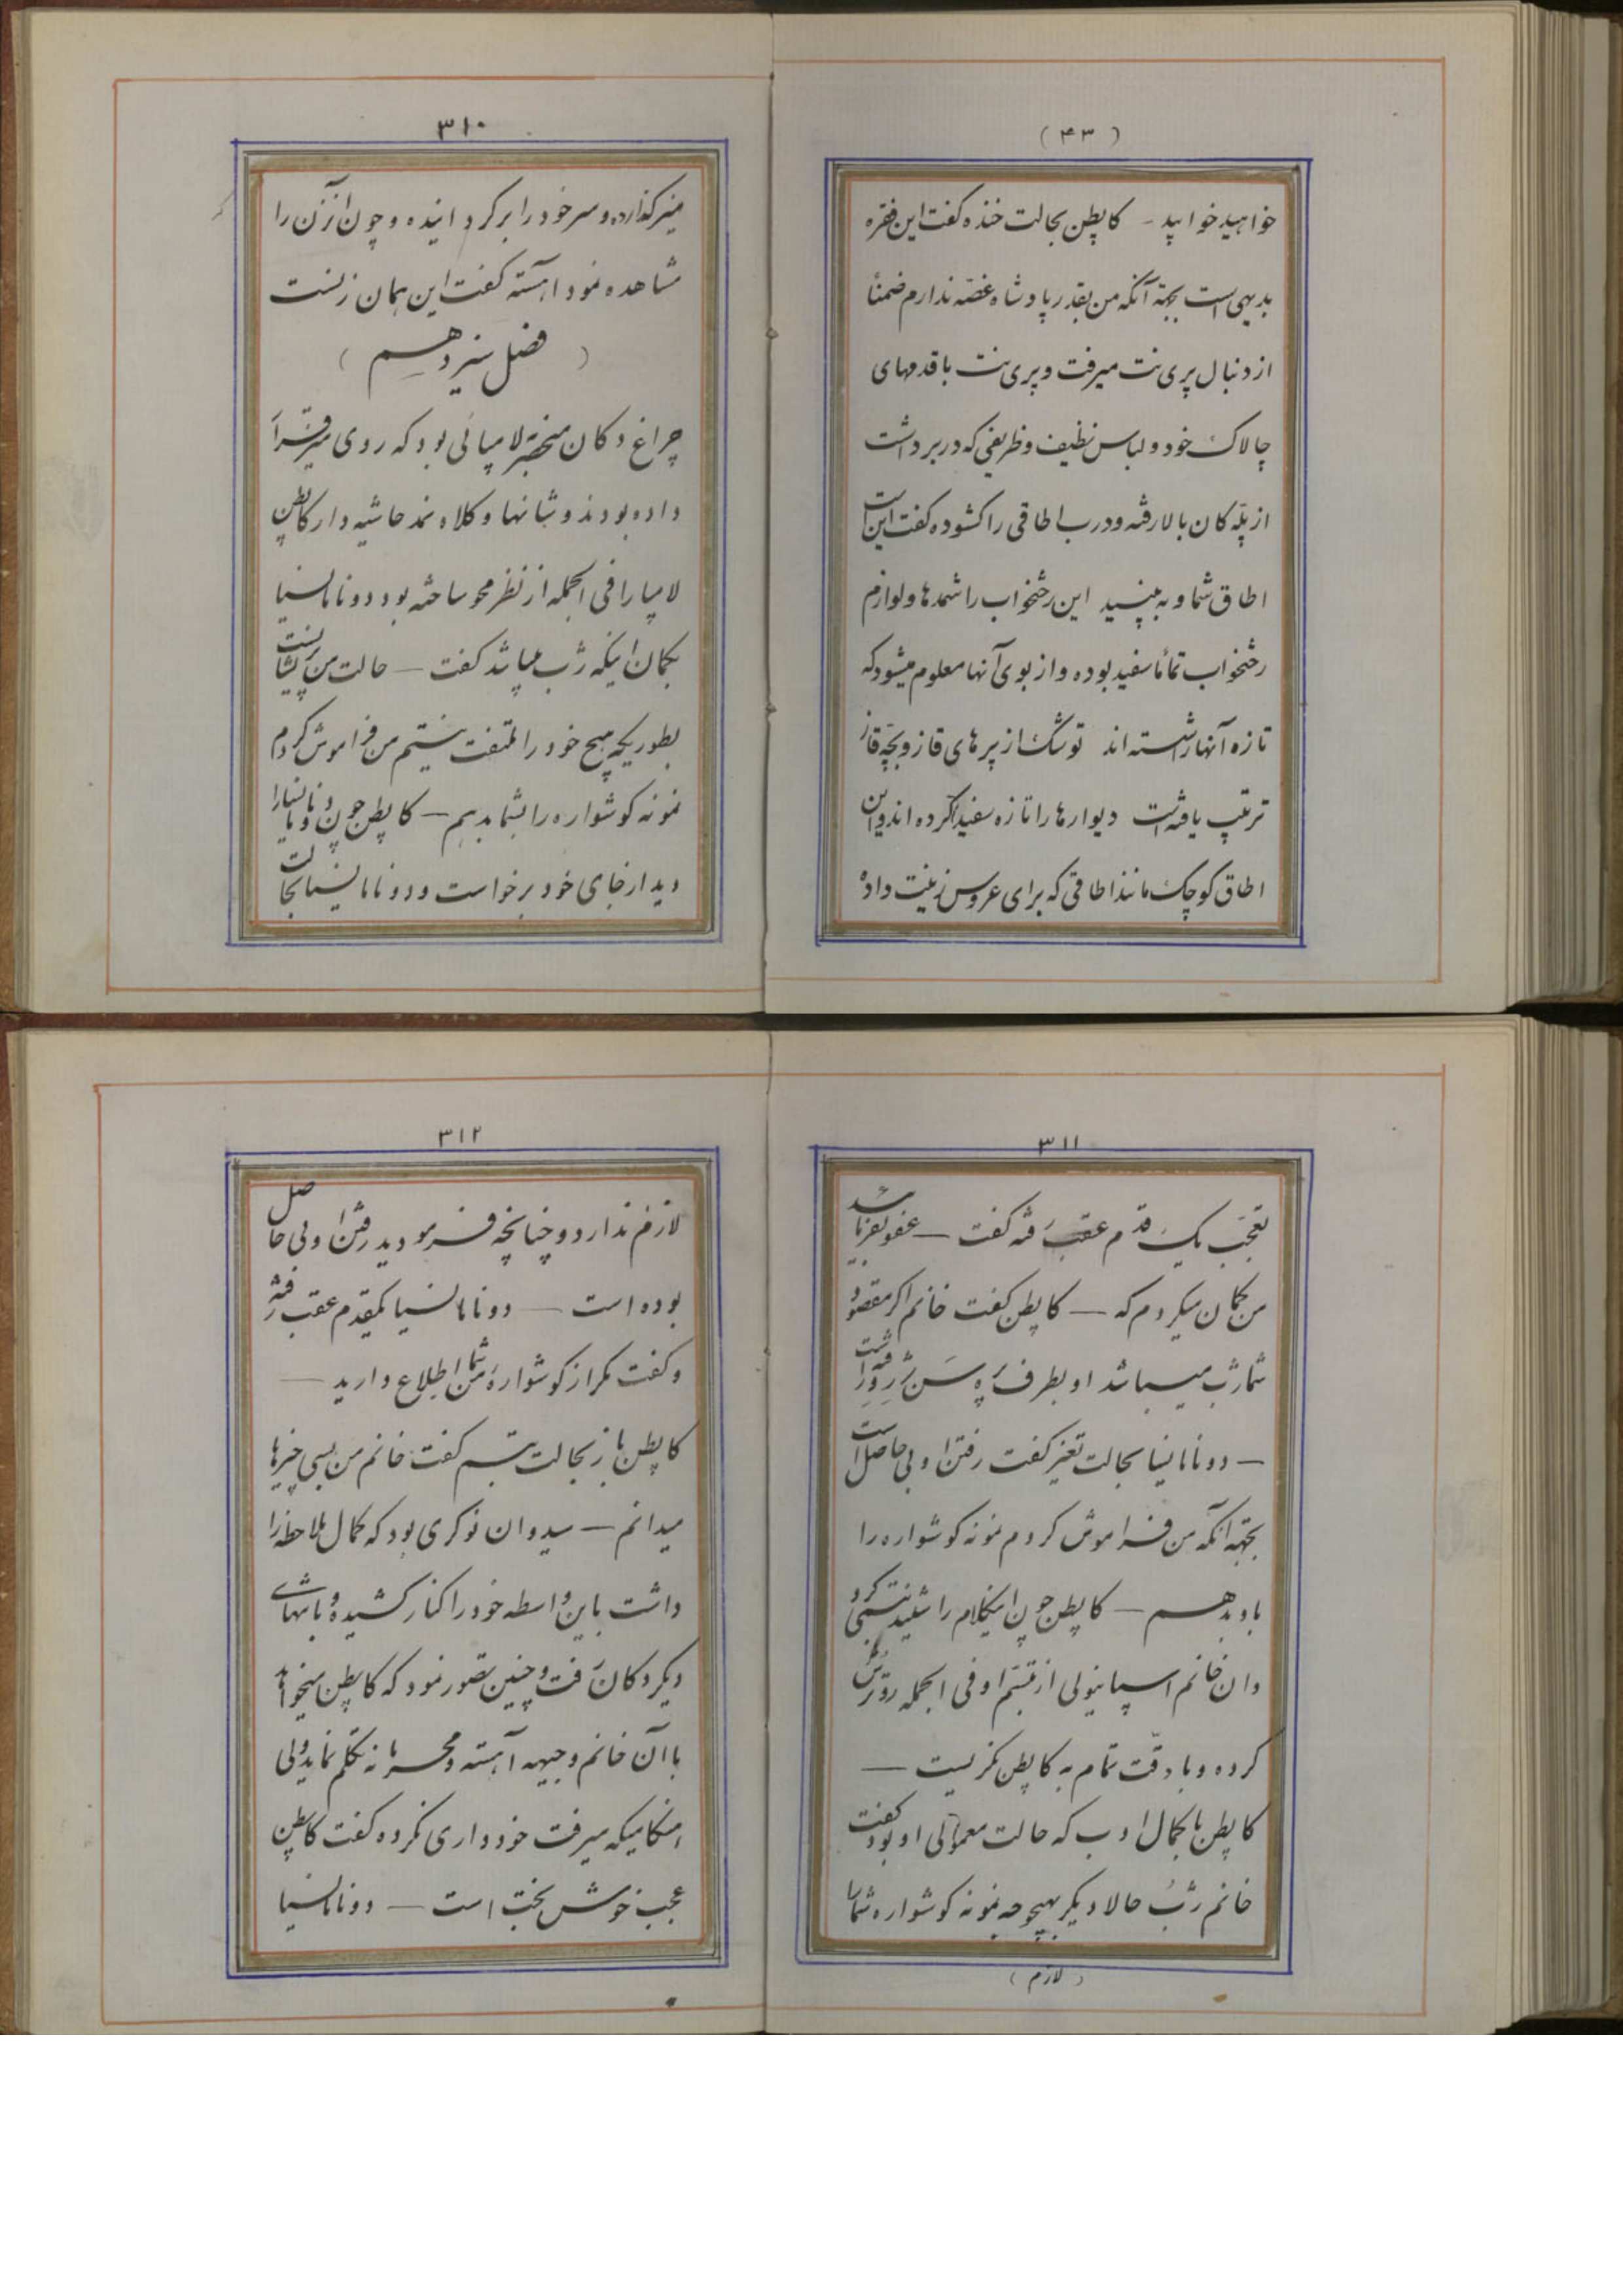 (۴۳)
خواهید خوابید - کاپطن بحالت خنده گفت این فقره
بدیهی است بجهة آنکه من بقدر پادشاه غصّه ندارم ضمناً
از دنبال پری نت میرفت و پری نت با قدمهای
چالاک خود و لباس نظیف و ظریفی که در برداشت
از پلّه کان بالا رفته و درب اطاقی را کشوده گفت این است
اطاق شما و به بینید این رختخواب را شمدها و لوازم
رختخواب تماماً سفید بوده و از بوی آنها معلوم میشود که
تازه آنها را شسته اند توشک از پرهای قاز و بچّه قاز
ترتیب یافته است دیوارها را تازه سفید کرده اند و این
اطاق کوچک مانند اطاقی که برای عروس زینت داده
۳۱۰
میز گذارده و سر خود را برگردانیده و چون آنزن را
مشاهده نمود آهسته گفت این همان زنست
( فصل سیزدهم )
چراغ دکان منحصر بلامپائی بود که روی میز قرار
داده بودند و شبانها و کلاه نمد حاشیه دار کاپطن
لامپا را فی الجمله از نظر محو ساخته بود دونا مانسیا
بکمان اینکه ژب میباشد گفت — حالت من پریشان است
بطوریکه هیچ خود را ملتفت نیستم من فراموش کردم
نمونه کوشواره را بشما بدهم — کاپطن چون دونا مانسیا را
دید از جای خود برخواست و دونا مانسیا بحالت
۳۱۱
تعجّب یک قدم عقب رفته گفت — عفو بفرمائید
من گمان میکردم که — کاپطن گفت خانم اگر مقصود
شما ژب میباشد او بطرف پره سن ژروه رفته است
— دونا مانسیا بحالت تغیّر گفت رفتن او بی حاصل است
بجهة آنکه من فراموش کردم نمونه کوشواره را
باو بدهم — کاپطن چون اینکلام را شنید تبسّمی کرد
و ان خانم اسپانیولی از تبسّم او فی الجمله رو ترش
کرده و با دقّت تمام به کاپطن نگریست —
کاپطن با کمال ادب که حالت معمولی او بود گفت
خانم ژب حالا دیگر بهیچوجه نمونه کوشواره شما را
(لازم)
۳۱۲
لازم ندارد و چنانچه فرمودید رفتن او بی حاصل
بوده است — دونا مانسیا یکقدم عقب رفته
و گفت مکر از کوشواره من شما اطلاع دارید —
کاپطن باز بحالت تبسم گفت خانم من بسی چیزها
میدانم — سیدوان نوکری بود که کمال ملاحظه را
داشت باین واسطه خود را کنار کشیده و بانتهای
دیگر دکان رفت و چنین تصور نمود که کاپطن میخواهد
با آن خانم وجیهه آهسته و محرمانه تکلم نماید ولی
هنکامیکه میرفت خودداری نکرده گفت کاپطن
عجب خوش بخت است — دونا مانسیا